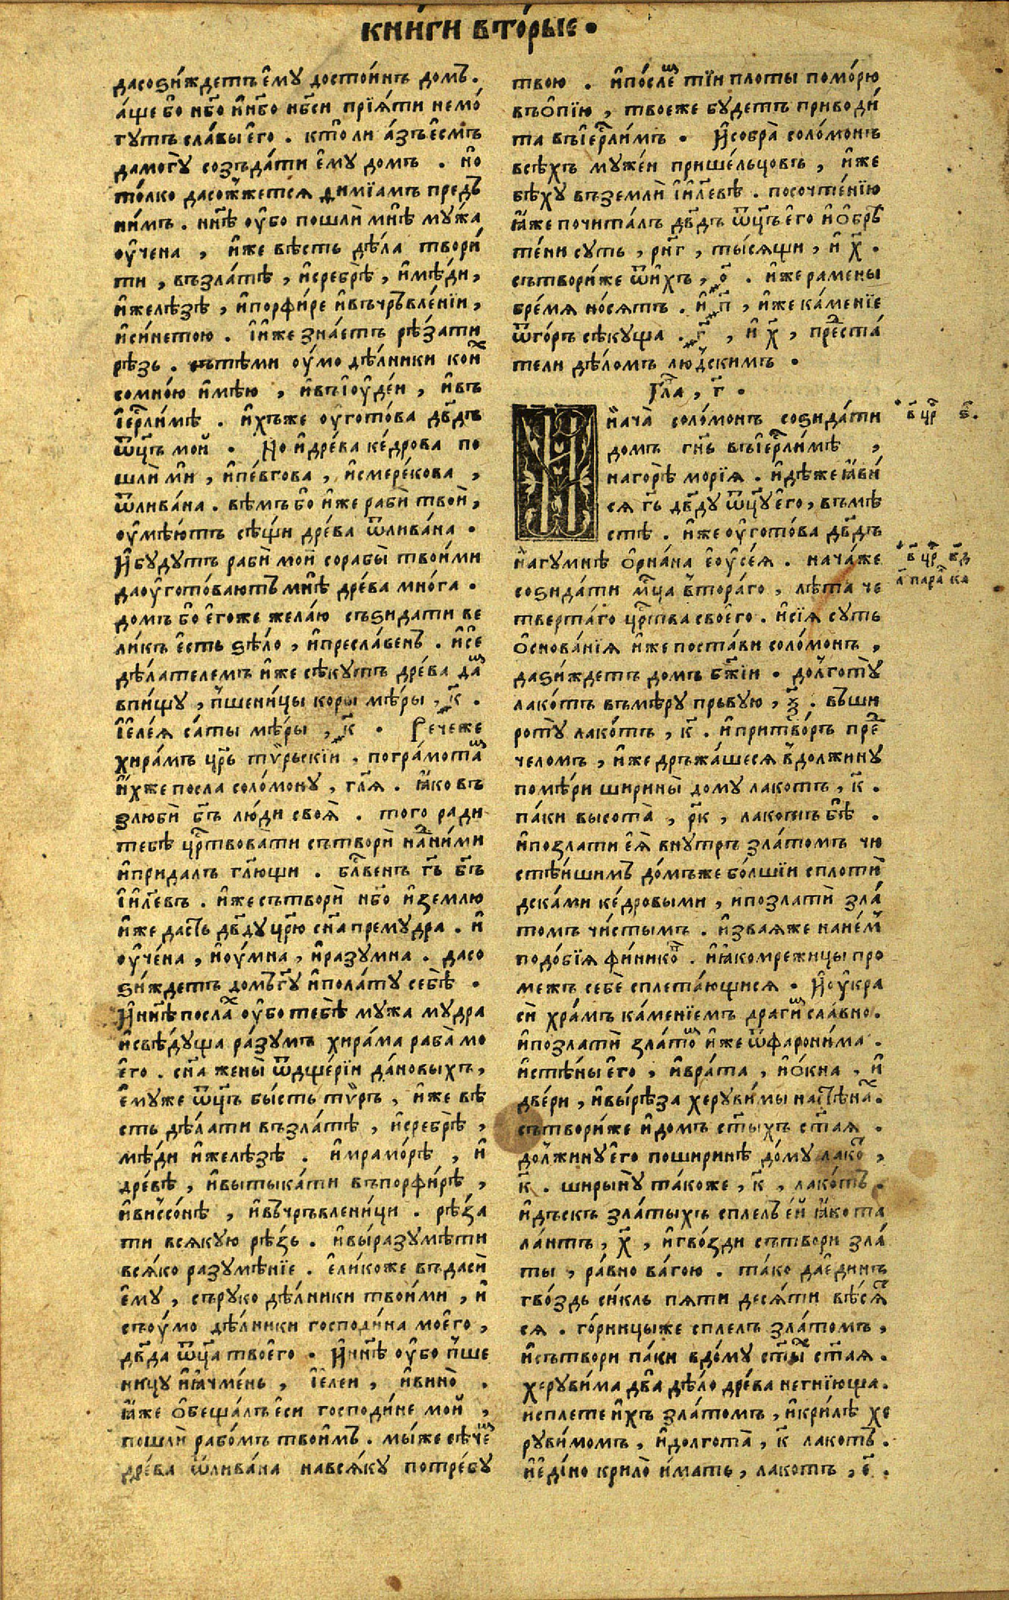 книги вто́рые .
дасоѕи́ждетъ є҆му достоинъ домъ .
а҆ще бо нб҃о и҆нб҃о нб҃си прїѧ́ти немо́
гутъ сла́вы є҆го . кто ли а҆́зъ є҆смъ
дамогу̀ созъда́ти є҆му домъ . но
то́лко дасожже́тсѧ димїамъ предъ
нимъ . нн҃ѣ оу҆бо пошлѝ мнѣ му́жа
оу҆чена , и҆же вѣсть дѣла твори́
ти , въѕла́тѣ , и҆сребрѣ , и҆мѣди ,
и҆желѣзѣ , и҆порфи́ре и҆въчръвле́нїи ,
и҆си́нетою . и҆и҆же зна́етъ рѣзати
рѣзь . сътѣми оу҆мо дѣлники кои҆х
сомно́ю и҆мѣю , и҆въїоу҆де́и , и҆въ
і҆ерл҃имѣ . и҆хъже оу҆гото́ва дв҃дъ
ѿц҃ъ мой . Но и҆дре́ва ке́дрова по
шли ми , и҆пе́вгова , и҆смере́кова ,
ѿлива́на . вѣмъ бо и҆же рабѝ твои̂ ,
оу҆мѣютъ сѣщи дре́ва ѿлива́на .
И҆будутъ рабѝ мои̂ сорабы̀ твои́ми
даоу҆гото́ваютъ мнѣ дре́ва мно́га .
домъ бо є҆гоже жела́ю съѕидати ве
ликъ є҆сть ѕѣло , и҆пресла́венъ . и҆се
дѣлателемъ и҆же сѣкутъ дре́ва да́мъ
впи́щу , пшени́цы коры мѣры , ҂к҃ .
і҆еле́ѧ са́ты мѣры , ҂к҃ . Рече́же
хира́мъ цр҃ь ти́рьскїи , погра́мотамъ
и҆́хже посла соло́мону , гл҃ѧ . ꙗ҆ко въ
злюбѝ бг҃ъ лю́ди своѧ̀ . того ради
тебѐ цр҃твовати сътворѝ над ни́ми
и҆прида́лъ гл҃ющи . бл҃венъ гд҃ь бг҃ъ
і҆и҆л҃евъ . и҆жесътворѝ нб҃о и҆землю
и҆же дастъ дв҃ду цр҃ю сн҃а прему́дра . и҆
оу҆че́на , и҆оу́мна , и҆разумна . дасо
ѕи́ждетъ домъ гд҃у и҆пола́ту себѣ̀ .
И҆нн҃ѣ посла́х оу҆бо тебѣ̀ мужа мудра
и҆свѣдуща ра́зумъ хира́ма раба̀ мо
є҆го . сн҃а жены̀ ѿдще́рїи да́новыхъ ,
є҆муже ѿц҃ъ бы́сть ти́ръ , и҆же вѣ
сть дѣ́лати въѕла́тѣ , и҆сребрѣ̀ ,
мѣ́ди и҆желѣзѣ . и҆мра́морѣ , и҆
дре́вѣ , и҆вытыка́ти въпорфи́рѣ ,
и҆ви́ссонѣ , и҆въчръвлени́ци . рѣза
ти всѧкую рѣзь . и҆вы́разумѣти
всѧ́ко разумѣ́нїе . є҆ли́коже въдаси̂
є҆му , съруко дѣ́лники твои́ми , и҆
съоу҆мо дѣ́лники господи́на моє҆го ,
дв҃да ѿц҃а твоє҆го . И҆нн҃ѣ оу҆бо пше
ницу и҆ꙗ҆чмень , і҆е́леи , и҆вино̀ .
ꙗ҆же ѻ҆беща́лъ є҆си господи́не мой ,
пошлѝ рабо́мъ твои́мъ . мы́же сѣче́мъ
дре́ва ѿлива́на навсѧ́ку потре́бу
твою . и҆по́слемъ ти̂ плоты помо́рю
въѻ҆пі́ю , твоє҆же будетъ приводи́
та въі҆ерл҃имъ . И҆собра̀ соло́монъ
всѣхъ муже́и прише́льцовъ , и҆же
бѣху въземли̂ і҆и҆л҃евѣ . посочте́нїю
ꙗ҆же почита́лъ дв҃дъ ѿц҃ъ є҆го и҆ѻ҆брѣ
те́ни суть , рн҃г , ты́сѧщи , и҆ х҃ .
сътвори́же ѿни́хъ , ҂ѻ҃ . и҆же рамены
бре́мѧ но́сѧтъ . и҆ ҂п҃ , и҆же ка́менїе
ѿго́ръ сѣкуща . ҂г҃ , и҆ х҃ , предста́
тели дѣломъ лю́дскимъ .
Гла , г҃ .
Нача̀ соло́монъ соѕида́ти
домъ гн҃ь въі҆ерл҃имѣ ,
нагорѣ̀ морі́ѧ . и҆дѣже ꙗ҆ви́
сѧ гд҃ь дв҃ду ѿц҃у є҆го , въмѣ
стѣ . и҆же оу҆гото́ва дв҃дъ
нагумнѣ̀ ѻ҆рна́на є҆оу҆се́ѧ . нача́же
соѕида́ти мц҃а вто́раго , лѣта че
тверта́го цр҃тва своє҆го . и҆сїѧ суть
ѻ҆снова́нїѧ и҆же поста́ви соло́монъ ,
даѕи́ждетъ домъ бж҃їи . долготу
лако́тъ въмѣ́ру прьвую , ѯ҃ . въши
роту лако́тъ , к҃ . и҆притво́ръ пред
че́ломъ , и҆же дръжа́шесѧ вдолжину
помѣ́ри ширины̀ дому лакотъ , к҃ .
па́ки высота̀ , рк҃ , лако́тъ бѣ .
и҆поѕлати є҆ѧ̀ внутръ зла́томъ чи
стѣ́ишимъ до́мъже бо́лшїи сплоти̂
дска́ми ке́дровыми , и҆позлати̂ зла́
томъ чи́стымъ . и҆зваѧ́же нане́мъ
подо́бїѧ фи́никовъ . и҆ꙗ҆комрежицы про
межъ себѐ сплета́ющисѧ . И҆оу҆кра
си̂ хра́мъ ка́менїемъ драги́мъ сла́вно .
и҆позлати̂ зла́томъ и҆же ѿфарони́ма .
и҆стѣ́ны є҆го , и҆вра́та , и҆ѻ҆́кна , и҆
две́ри , и҆вы́рѣза херуви́мы настѣна́х .
сътвори́же и҆домъ ст҃ы́хъ ст҃аѧ .
долж́ину є҆го поширинѣ̀ до́му лакотъ ,
к҃ . ширыну̀ та́коже , к҃ , лако́тъ .
и҆дъскъ зла́тыхъ спле́лъ є҆й ꙗ҆ко та
ла́нтъ , х҃ , и҆гво́зди сътвори зла́
ты , ра́вно ва́гою . та́ко дає҆ди́нъ
гво́здь си́кль пѧ́ти десѧ́ти вѣсѧ́щ
сѧ . го́рницыже спле́лъ зла́томъ ,
и҆сътвори па́ки вдо́му ст҃ы́х ст҃аѧ .
херуви́ма два дѣ́ло дре́ва негнїюща .
исплете и҆́хъ зла́томъ , и҆крилѣ̀ хе
руви́момъ , и҆долгота̀ , к҃ лако́тъ .
и҆є҆ди́но крило̀ и́мать , лакотъ , є҃ .
в҃ цр҃ ѕ҃ .
в҃ цр҃ к҃д
а҃ пара к҃а